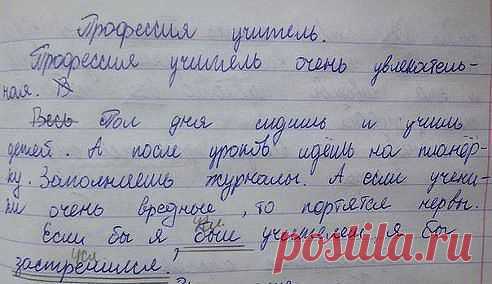 Профессия учитель.
Профессия учитель очень увлекатель-
ная. В
Весь Пол дня сидишь и учишь
детей. А после уроков идёшь на планёр-
ку. Заполняешь журналы. А если учени-
ки очень вредные, то портятся нервы.
усл.
Если бы я был учителем я бы
усл.
застрелился.
postila.ru